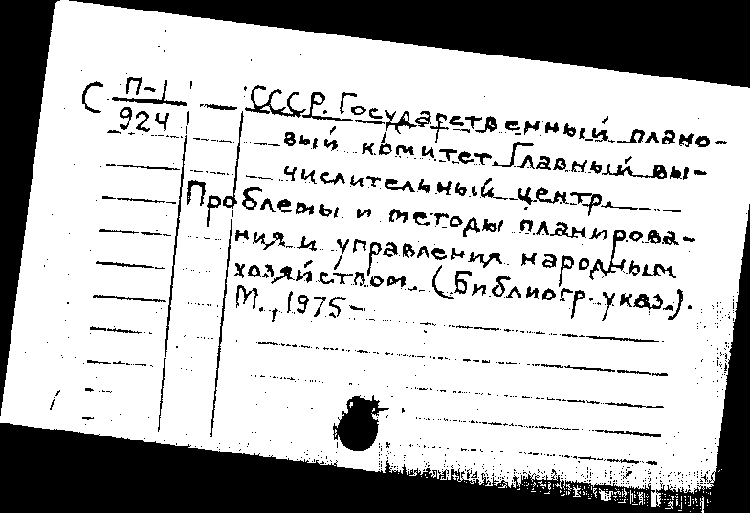 С П-1
924
СССР. Государственный плано-
вый комитет. Главный вы-
числительный центр.
Проблемы и методы планирова-
ния и управления народным
хозяйством. (Библиогр. указ.).
М., 1975-